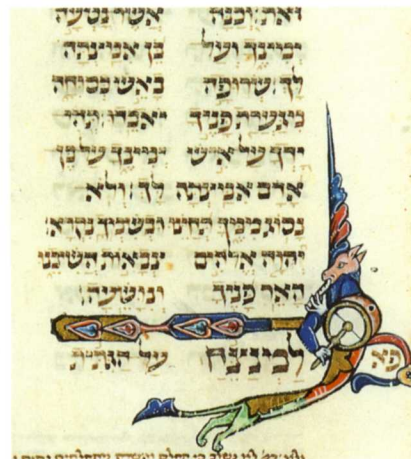 זאת׃ וכנה אשר נטעה
ימינך ועל בן אמצתה
לך׃ שרפה באש כסוחה
מגערת פניך יאבדו׃ תהי
ידך על איש ימינך על בן
אדם אמצת לך׃ ולא
נסוג ממך תחינו ובשמך נקרא׃
יהוה אלהים צבאות השיבנו
האר פניך ונושעה׃
פא למנצח על הגתית